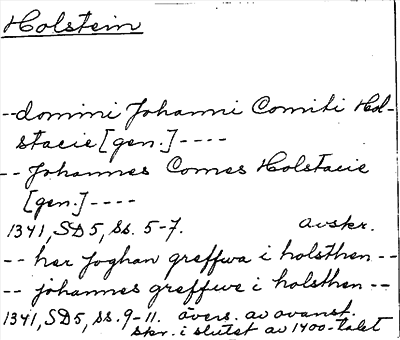 Holstein
--domini Johanni Comiti Hol-
stacie [gen.]----
-- Johannes Comes Holstacie
[gen.]----
1341, SD5, ss. 5-7. avskr.
-- her Joghan greffwa i holsthen --
-- johannes greffwe i holsthen --
1341, SD5, ss. 9-11. övers. av ovanst.
skr. i slutet av 1400-talet